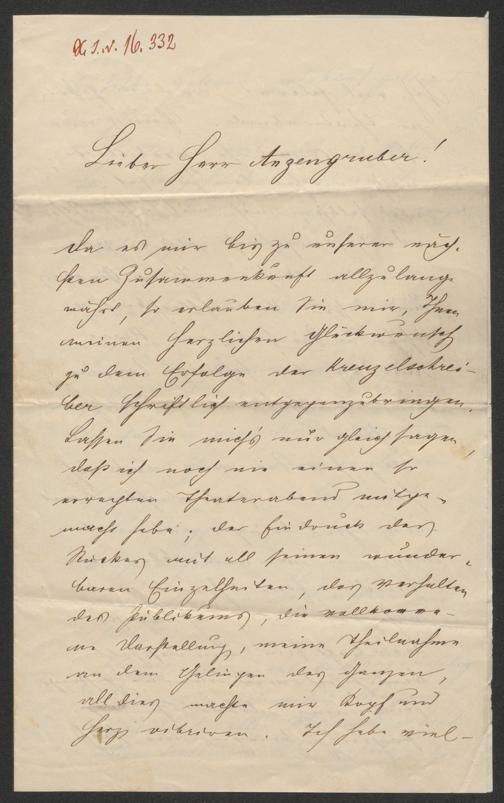 I.N. 16.332
Lieber Herr Anzengruber!
Da es mir bis zu unserer näch-
sten Zusammenkunft allzulang
währt, so erlauben Sie mir, Ihnen
meinen herzlichen Glückwunsch
zu dem Erfolge der Kreuzelschrei-
ber schriftlich entgegenzubringen.
Lassen Sie mich's nur gleich sagen,
daß ich noch nie einen so
erregten Theaterabend mitge-
macht habe; der Eindruck des
Stückes mit all seinen wunder-
baren Einzelheiten, das Verhalten
des Publikums, die vollkomme-
ne Darstellung, meine Theilnahme
an dem Gelingen des Ganzen,
all dies machte mir Kopf und
Herz vibriren. Ich habe viel-